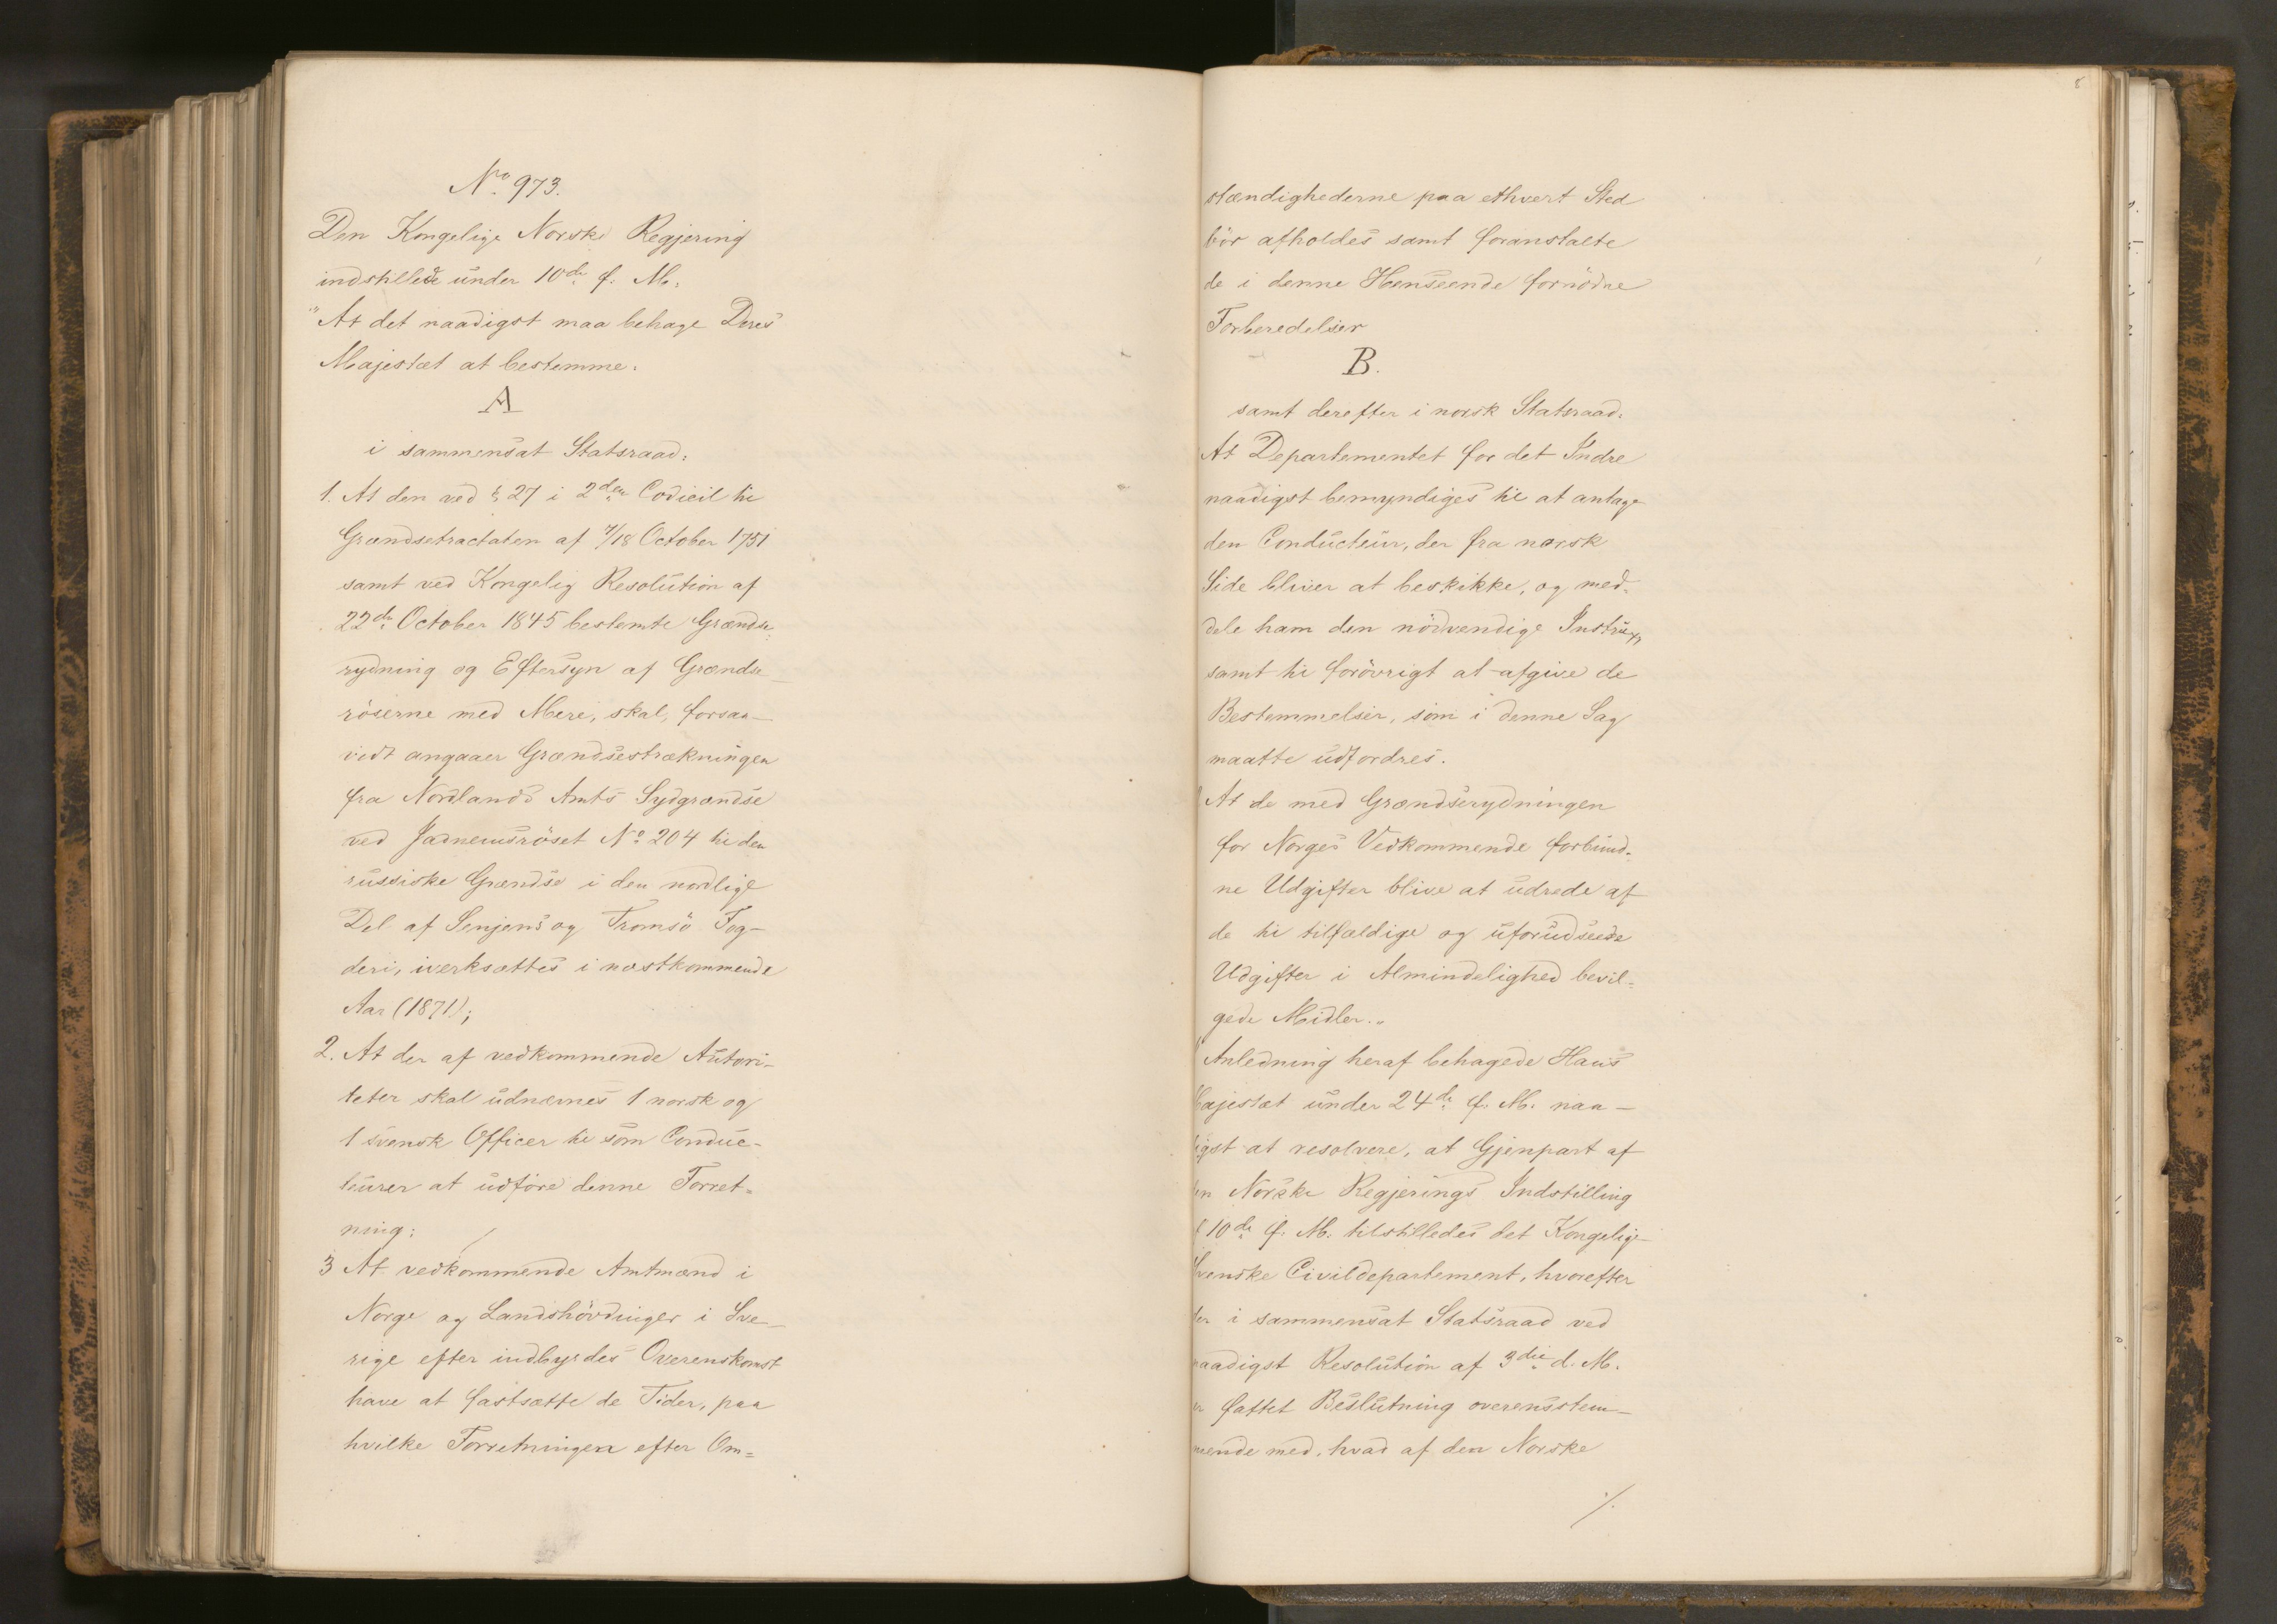 No. 973.
Den Kongelige Norske Regjering
indstillede under 10de f. M.
"At det naadigst maa behage Deres
Majestæt at bestemme:
A
i sammensat Statsraad:
1. At den ved § 27 i 2den Codicil til
Grændsetractaten af 7/18 October 1751
samt ved Kongelig Resolution af
22de October 1845 bestemte Grændse-
rydning og Eftersyn af Grændse-
röserne med Mere, skal, forsaa-
vidt angaaer Grændsestrækningen
fra Nordlands Amts Sydgrændse
ved Jadnemsröset No 204 til den
russiske Grændse i den nordlige
Del af Senjens og Tromsö Fog-
deri, iverksættes i næstkommende
Aar (1871);
2. At der af vedkommende Autori-
teter skal udnævnes 1 norsk og
1 svensk Officer til som Conduc-
teurer at udföre denne Forret-
ning;
3 At vedkommende Amtmænd i
Norge og Landshövdinger i Sve-
rige efter indbyrdes Overenskomst
have at fastsætte de Tider, paa
hvilke Forretningen efter Om-
stændighederne paa ethvert Sted
bör afholdes samt foranstalte
de i denne Henseende fornödne
Forberedelser
B.
samt derefter i norsk Statsraad:
At Departementet for det Indre
naadigst bemyndiges til at antage
den Conducteur, der fra norsk
Side bliver at beskikke, og med-
dele ham den nödvendige Instrux,
samt til forövrigt at afgive de
Bestemmelser, som i denne Sag
maatte udfordres.
At de med Grændserydningen
for Norges Vedkommende forbund-
ne Udgifter blive at udrede af
de til tilfældige og uforudseede
Udgifter i Almindelighed bevil-
gede Midler."
Anledning heraf behagede Hans
Majestæt under 24de f. M. naa-
digst at resolvere, at Gjenpart af
den Norske Regjerings Indstilling
af 10de f. M. tilstilledes det Kongelige
Svenske Civildepartement, hvorefter
der i sammensat Statsraad ved
naadigst Resolution af 3die d. M.
er fattet Beslutning overensstem-
mende med, hvad af den Norske
./.
8